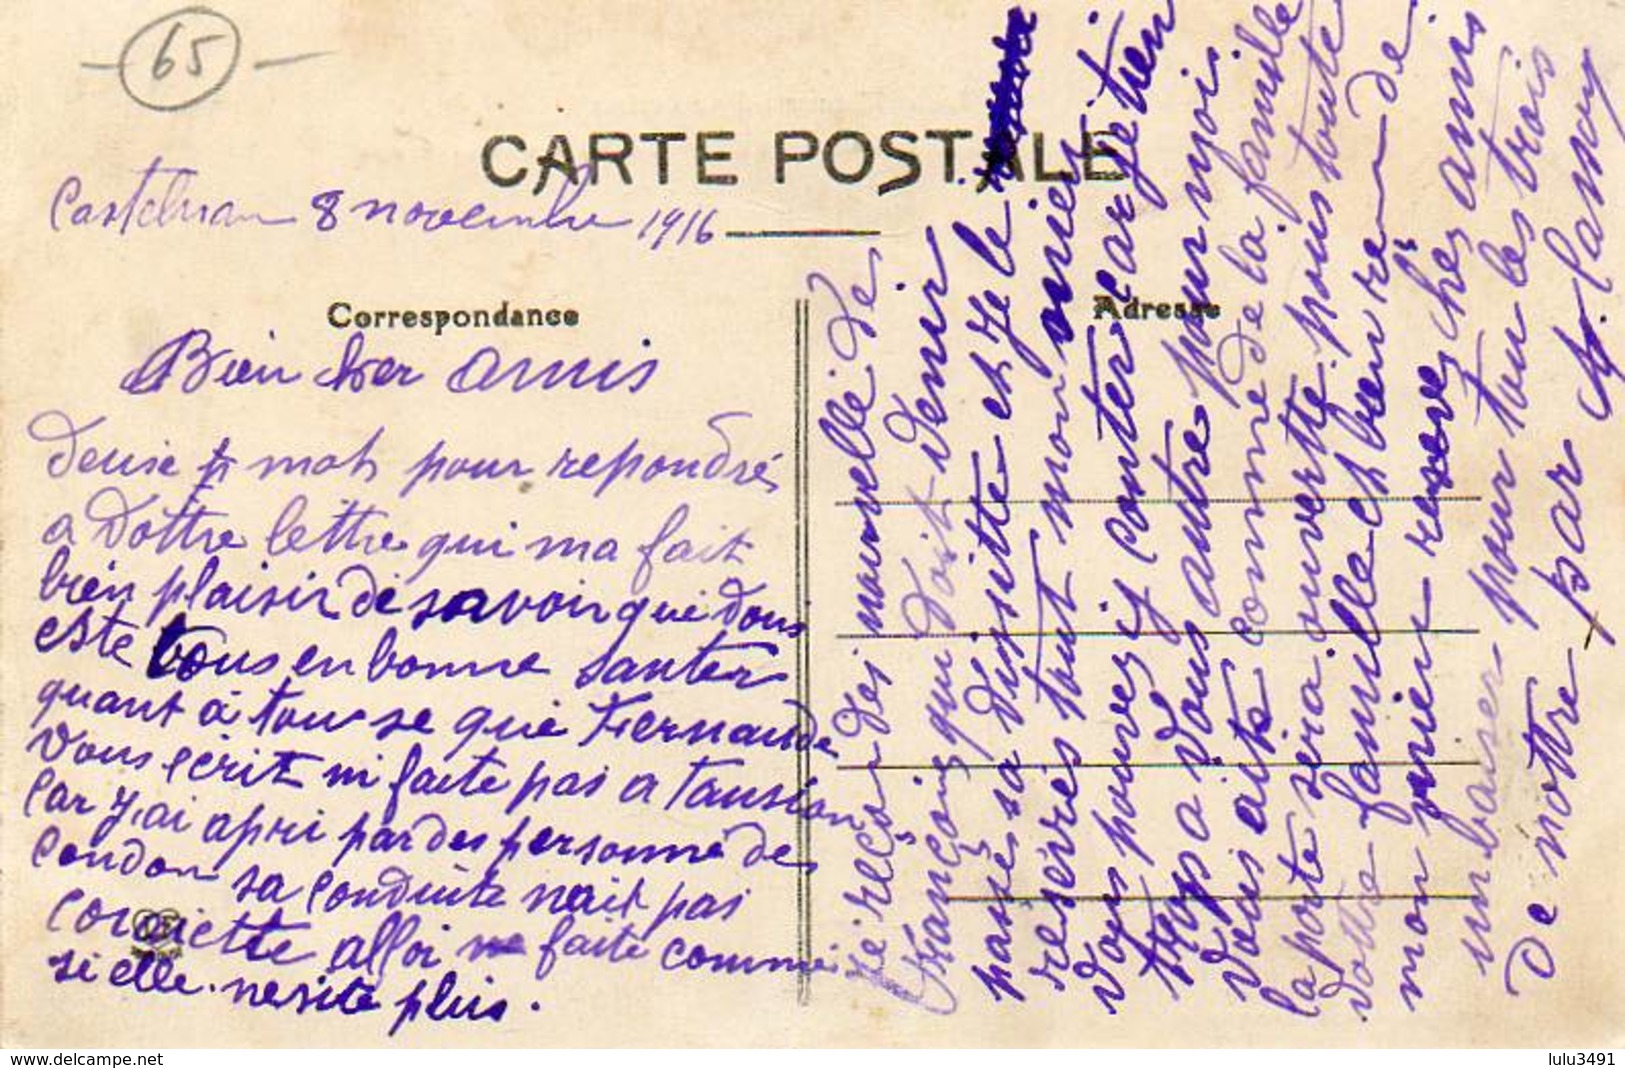 65
CARTE POSTALE
Castelnau 8 novembre 1916
Correspondance
Adresse
Bien cher amis
deuse mots pour repondrés
a vottre lettre qui ma fait
bien plaisir de savoir que vous
este tous en bonne santer
quant à tou se que Fernande
vous écrit ni faite pas atansion
car j,ai apri par des personne de
Condon sa conduite nait pas
corriette alloi faite comme
si elle nesite plus.
je reçoi des nouvelle de
François qui doit venir
passés sa visitte et je le
resévrés tout mon
vous pouvez y conter car je tien
trop a vous autre pour moi
vous aite comme de la famille
la porte sera ouverte pour toute
votte famille et bien rien de
mon mien reseve cher amis
un baiser pour tou les trois
de nottre par
www.delcampe.net
lulu3491